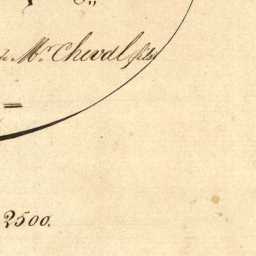 Mr Cheval fils
2500.